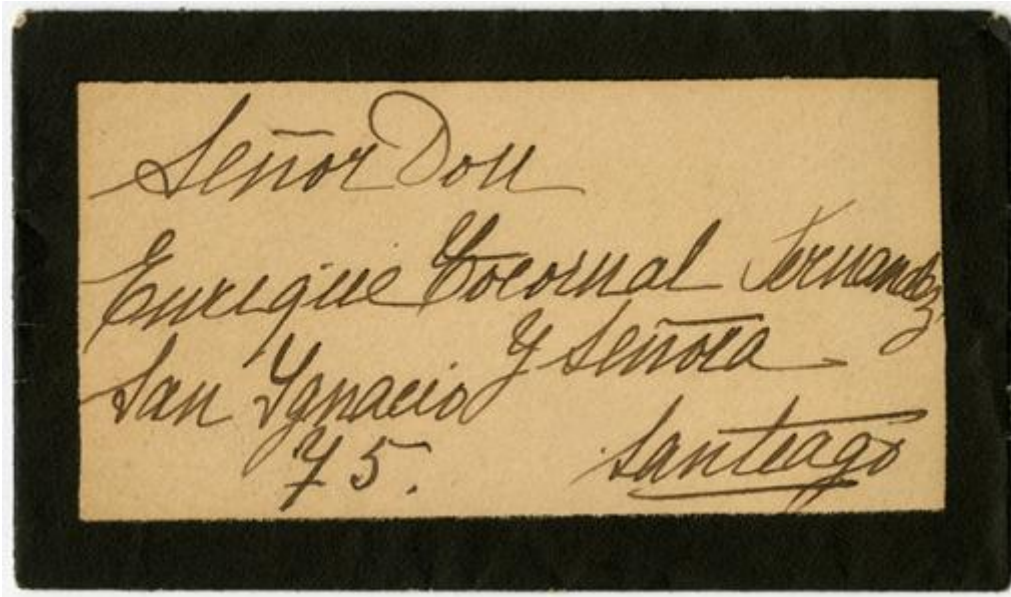 Señor Don
Enrique Cocornal Fernandez
y Señora
San Ygnacio
75.
Santiago